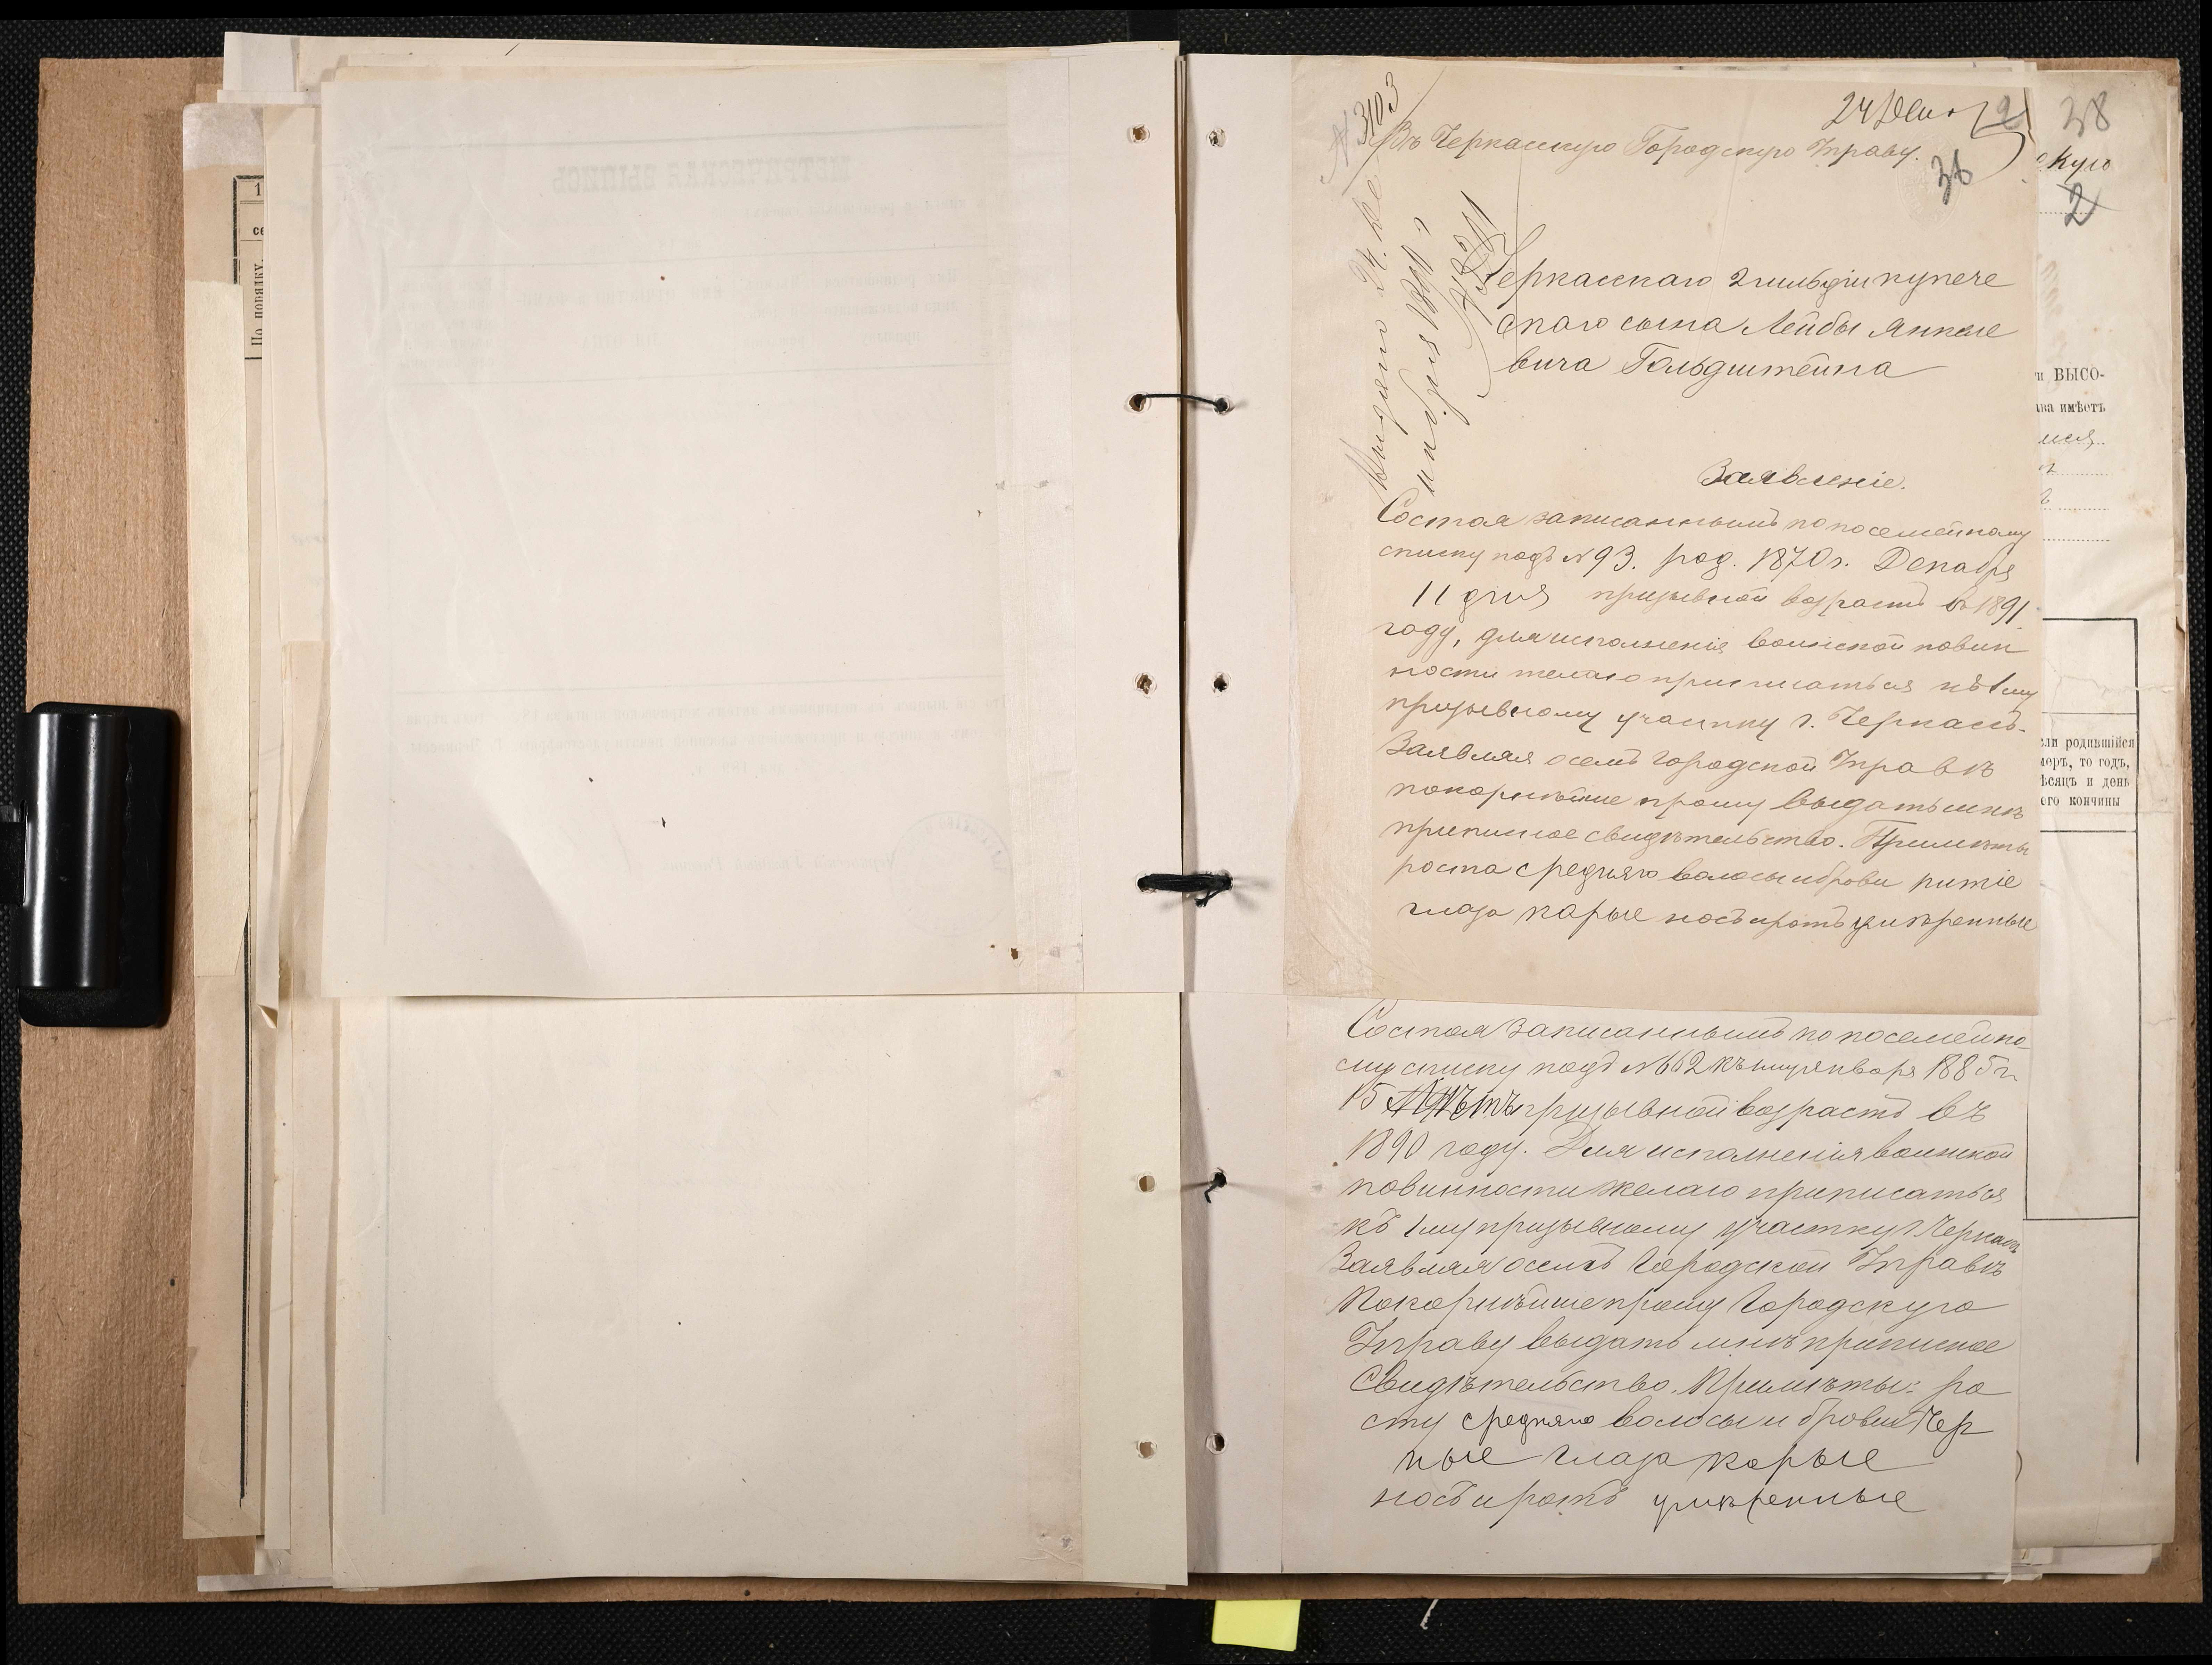 № 3103
24 Дек
38
2
Въ Черкасскую Городскую Управу.
36
скую
2
Черкасскаго 2 гильдіи купече
скаго сына Лейбы Янкеле
вича Гольдштейна
Выдано 24 де
кабря 1890 г
Заявленіе.
Состоя записаннымъ по посемейному
списку подъ №93. род. 1870 г. Декабря
11 дня призывной возрастъ въ 1891
году, для исполненія воинской повин
ности желаю приписаться къ 1му
призывному участку г. Черкассъ.
Заявляя о семъ Городской Управѣ
покорнѣйше прошу выдать мнѣ
приписное свидѣтельство. Примѣты
роста средняго волосы и брови рижіе
глаза карые носъ и ротъ умѣренные
Состоя записаннымъ по посемейно-
му списку подъ №662 къ 1му января 1885 г.
15 лѣтъ призывной возрастъ въ
1890 году. Для исполненія воинской
повинности желаю приписаться
къ 1му призывному участку г Черкассъ
Заявляя о семъ Городской Управѣ
Покорнѣйше прошу Городскую
Управу выдать мнѣ приписное
Свидѣтельство. Примѣты: ро
сту средняго волосы и брови Чер
ные глаза карые
носъ и ротъ умѣренные
и ВЫСО-
ава имѣетъ
ли родившійся
меръ, то годъ,
ѣсяцъ и день
его кончины
1
се
По порядку.
МЕТРИЧЕСКАЯ ВЫПИСЬ